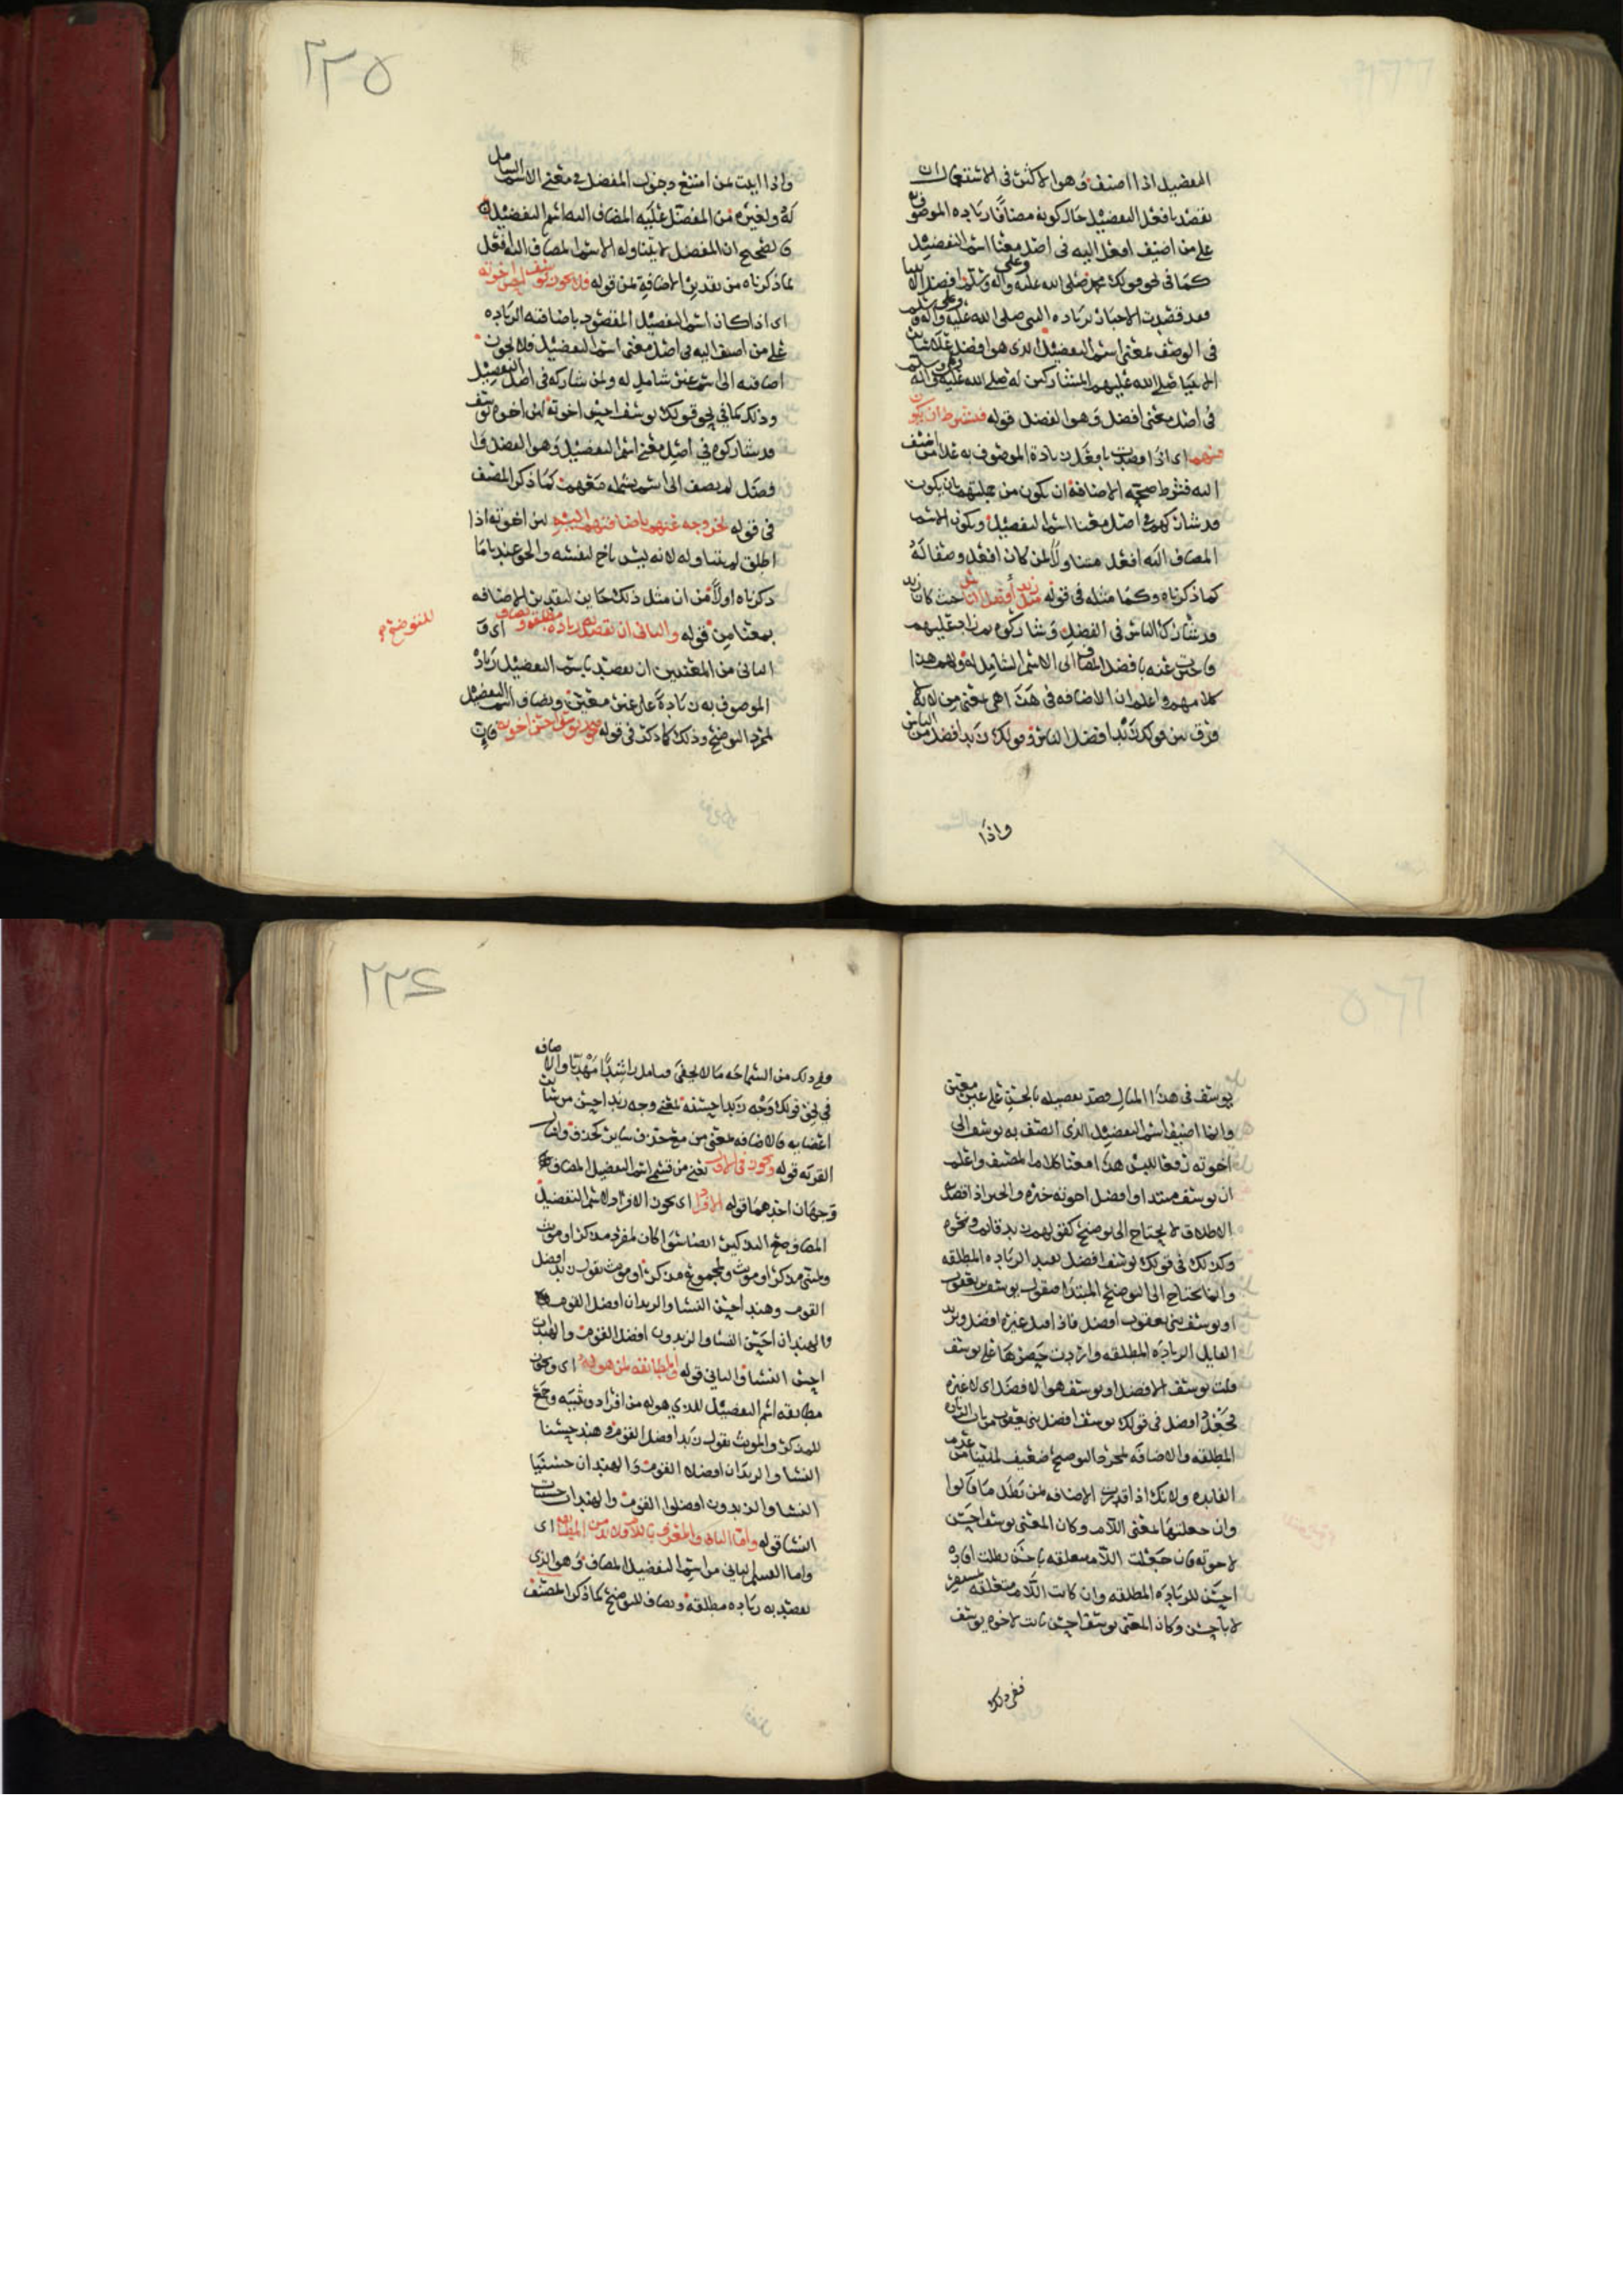 التفضيل اذا اضيف وهو الاكثر فى الاستعمال ان
يقصد بافعل التفضيل حال كونه مضافا زياده الموصوف
على من اضيف افعل اليه فى اصل معنا اسم التفضيل
كما فى نحو قولك محمد صلى الله عليه وعلى اله وسلم افضل الانبيا
فقد قصدت الاخبار بزياده النبى صلى الله عليه وعلى اله وسلم
فى الوصف بمعنى اسم التفضيل الذى هو افضل على سائر
الانبيا صلى الله عليهم المشاركين له صلى الله عليه وعلى اله وسلم
فى اصل معنى افضل وهو الفضل قوله فيشترط ان يكون
منهم اى اذا قصدت بافعل زيادة الموصوف به على من اضيف
اليه فشرط صحة الاضافة ان يكون من جملتهم بان يكون
قد شاركهم فى اصل معنا اسم التفضيل ويكون الاسم
المضاف اليه افعل متناولا لمن كان افعل وصفا له
كما ذكرناه وكما مثله فى قوله مثل زيد أفضل الناس حيث كان زيد
قد شارك الناس فى الفضل وشاركوه زاد عليهم
بافضل المضاف الى الاسم الشامل له ولهم هذا
كلامهم واعلم ان الاضافه فى هذا هى بمعنى من لانه لا
فرق بين قولك زيد افضل الناس وقولك زيد افضل من الناس
واذا
٢٢٥
واذا ثبت لمن امتنع دخول المفضل فى معنى الاسم الشامل
له ولغيره من المفضل عليه المضاف اليه اسم التفضيل
فالصحيح ان المفضل لا يتناوله الاسم المضاف اليه افعل
لما ذكرناه من تقدير الاضافة بمن قوله فلا يجوز يوسف احسن اخوته
اى اذا كان اسم التفضيل المقصود باضافته الزياده
على من اضيف اليه فى اصل معنى اسم التفضيل فلا يجوز
اضافته الى اسم غير شامل له ولمن شاركه فى اصل التفضيل
وذلك كما فى نحو قولك يوسف احسن اخوته لان اخوه يوسف
قد شاركوه فى اصل معنى اسم التفضيل وهو الفضل
لم يضف الى اسم يشمله معهم كما ذكر المصنف
فى قوله لخروجه عنهم باضافتهم اليه لان اخوته اذا
اطلق لم يتناوله لانه ليس باخ لنفسه والحق عندنا ما
ذكرناه اولا من ان مثل ذلك جايز لتقدير الاضافه
بمعنا من قوله والثانى ان تقصد زياده مطلقه ويضاف اى
للتوضيح
الثانى من المعنيين ان يقصد باسم التفضيل زيادة
الموصوف به زيادة على غير معين ويضاف اسم التفضيل
لمجرد التوضيح وذلك كما ذكر فى قوله نحو يوسف احسن اخوته فان
يوسف فى هذا المثال قصد تفضيله بالحسن على غير معين
وانما اضيف اسم التفضيل الذى اتصف به يوسف الى
اخوته رفعا للبس هذا معنا كلام المصنف واعلم
ان يوسف مبتدا وافضل اخوته خبره والخبر اذا قصد
الاطلاق لا يحتاج الى توضيح كقولهم زيد قائم ونحوه
وكذلك فى قولك يوسف افضل تفيد الزياده المطلقه
وانما يحتاج الى التوضيح المبتدا فتقول يوسف بن يعقوب
او يوسف بنى يعقوب افضل فاذا قيل غيره افضل ويريد
القايل الزياده المطلقه واردت حصرها على يوسف
قلت يوسف الافضل او يوسف هو الافضل اى لا غيره
فجعل افضل فى قولك يوسف افضل بنى يعقوب الزياده
المطلقه والاضافه لمجرد التوضيح ضعيف لما بينا من عدم
الفايده ولانك اذا قدرت الاضافه بمن بطل ما قالوا
وان جعلتها بمعنى اللام وكان المعنى يوسف احسن
لاخوته فان جعلت اللام متعلقه باحسن بطلت افاده
احسن للزياده المطلقه وان كانت اللام متعلقه بمستقر
لا باحسن وكان المعنى يوسف احسن ثابت لاخوه يوسف
ففى ذلك
٢٢٦
ففى ذلك من السماجه ما لا يخفى فتامل راشدا مهديا والاضافه
فى نحو قولك وجه زيد احسنه بمعنى وجه زيد احسن من سائر
اعضايه فالاضافه بمعنى من مع حذف ساير
القرية قوله ويجوز فى الاول يعنى من قسمى اسم التفضيل المضاف
وجهان احدهما قوله الافراد اى يجوز الافراد لاسم التفضيل
المضاف مع التذكير ايضا سوا كان لمفرد مذكر او مونث
ولمثنى مذكر او مونث ولمجموع مذكر او مونث تقول زيد افضل
القوم وهند احسن النسا والزيدان افضل القوم
والهندان احسن النسا والزيدون افضل القوم والهندات
احسن النسا والثانى قوله والمطابقه لمن هو له اى ويجوز
مطابقه اسم التفضيل للذى هو له من افراد وتثنيه وجمع
للمذكر والمونث تقول زيد افضل القوم وهند حسنا
النسا والزيدان افضلا القوم والهندان حسنيا
النسا والزيدون افضلوا القوم والهندات حسنات
النسا قوله واما الثانى والمعرف باللام فلا بد من المطابقه اى
واما القسم الثانى من اسم التفضيل المضاف وهو الذى
يقصد به زياده مطلقه ويضاف للتوضيح كما ذكر المصنف